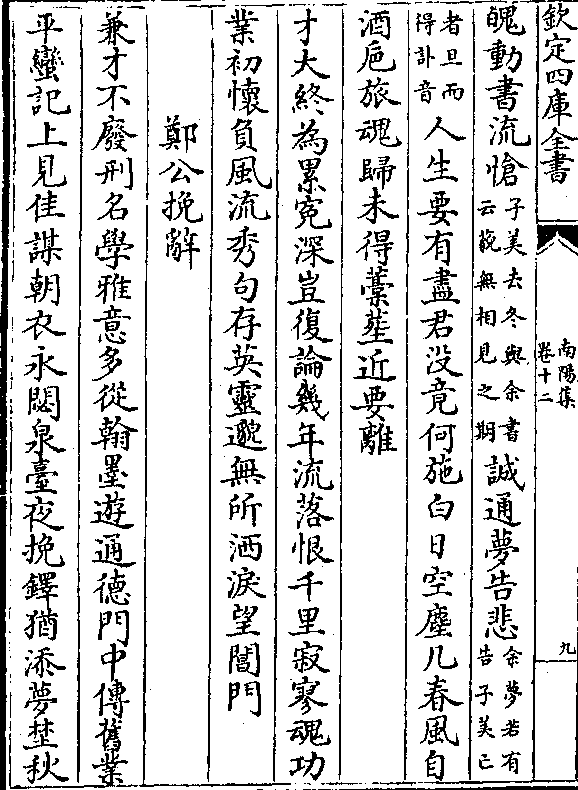 欽定四庫全書
南陽集
卷十二
九
魄動書流愴子美去冬與余書云苑無相見之期誠通夢告悲余夢若有告子美亡
者旦而得訃音人生要有盡君没竟何施白日空塵几春風自
酒巵旅魂歸未得藁塟近要離
才大終為累寃深豈復論幾年流落恨千里寂寥魂功
業初懷負風流秀句存英靈邈無所洒淚望閶門
鄭公挽辭
兼才不廢刑名學雅意多從翰墨遊通德門中傳舊業
平蠻記上見佳謀朝衣永閟泉臺夜挽鐸猶添夢埜秋